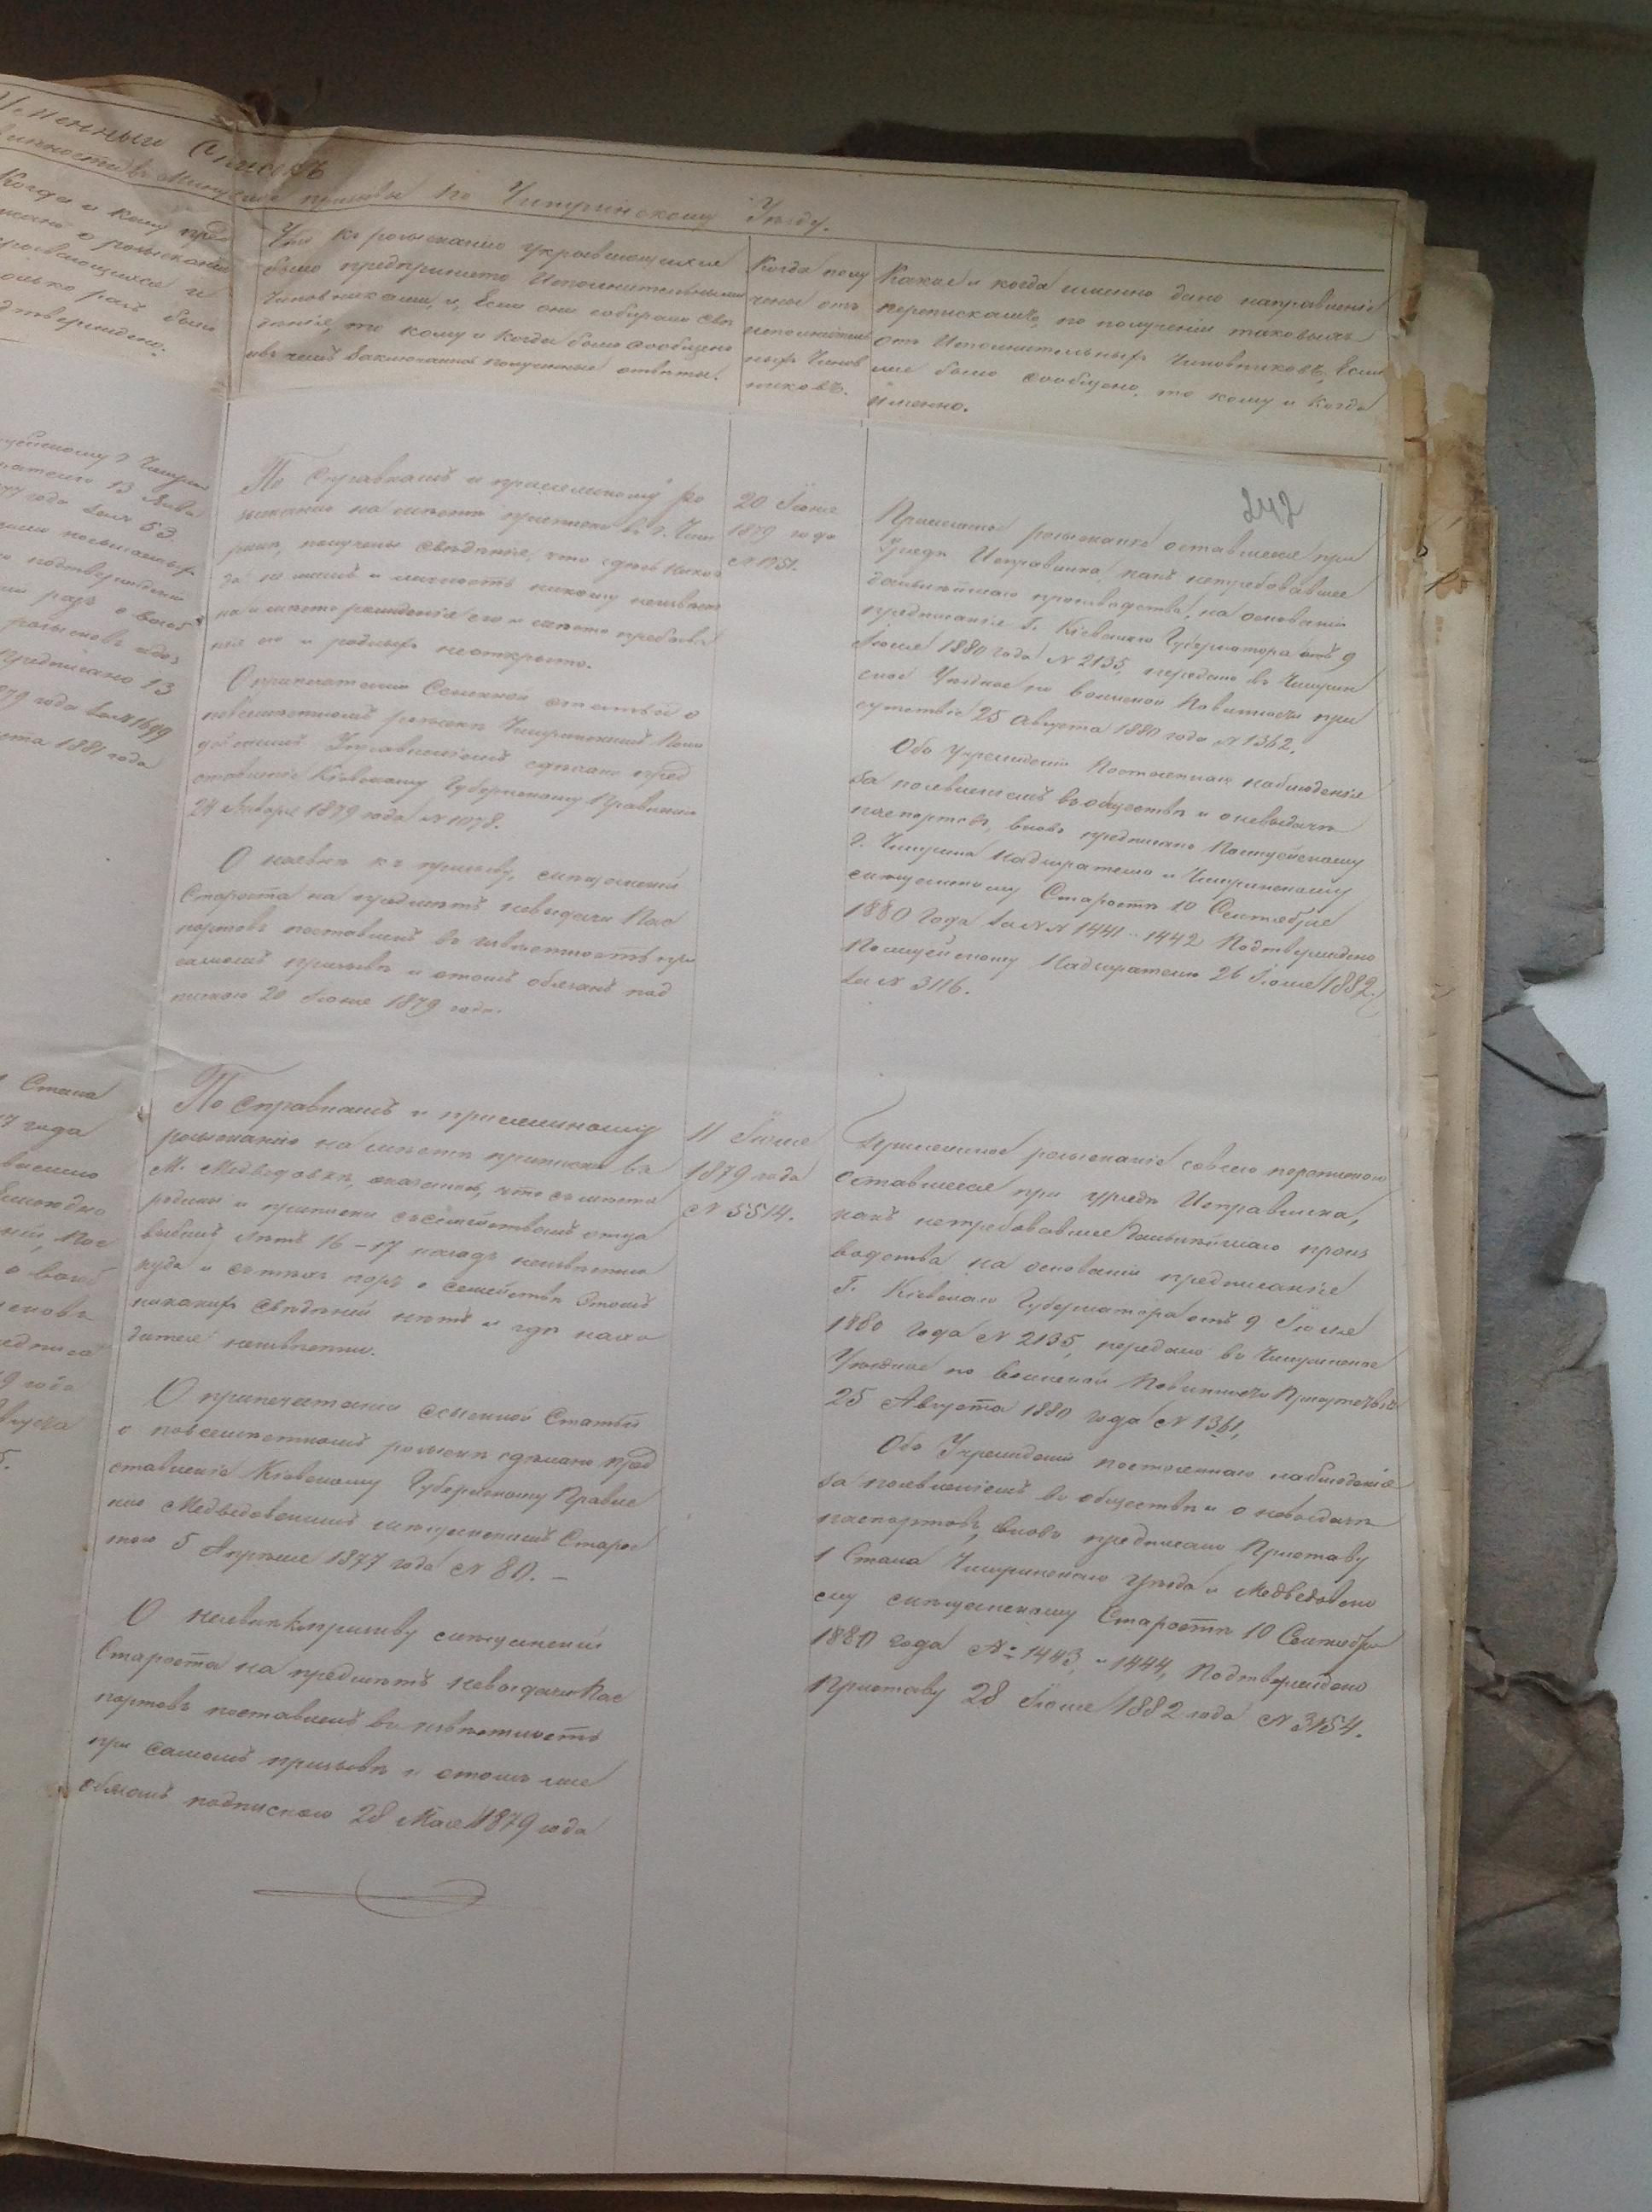 Именный Списокъ
призыва по Чигиринскому Уѣзду.
Когда и кому пред
писано о розысканіи
укрывающихся и
сколько разъ было
подтверждено.
Что къ розысканію укрывающихся
было предпринято Исполнительными
Чиновниками, и, если они собирали свѣ
денія, то кому и когда было сообщено
и въ чемъ заключались полученные отвѣты.
Когда полу
чены отъ
исполнитель
ныхъ Чинов
никовъ.
Какое и когда именно дано направленіе
перепискамъ, по полученіи таковыхъ
отъ Исполнительныхъ Чиновниковъ, Если
же было сообщено, то кому и когда
именно.
242
13 Янва
77 года за № 53.
Предписано 13
79 года за № 1699
1881 года
По справкамъ и прилежному ро
зысканію на мѣстѣ приписки въ г. Чиги
ринѣ, получены свѣденія, что здѣсь никог
да не жилъ и личность никому неизвѣст
на и мѣсто рожденія его и мѣсто пребыва
нія его и родныхъ неоткрыто.
О припечатаніи Сенатской статьи о
повсемѣстномъ розыскѣ Чигиринскимъ Поли
цейскимъ Управленіемъ сдѣлано пред
ставленіе Кіевскому Губернскому Правленію
24 Января 1879 года № 1078.
О неявкѣ къ призыву, мѣщанскій
Староста на предметъ невыдачи Пас
портовъ поставленъ въ извѣстность при
самомъ призывѣ и въ томъ обязанъ под
пискою 20 Іюня 1879 года.
20 Іюня
1879 года
№ 1751.
Прилежное розысканіе оставшееся при
Уѣздн. Исправника, какъ нетребовавшее
дальнѣйшаго производства, на основаніи
предписанія Г. Кіевскаго Губернатора отъ 9
Іюля 1880 года № 2135, передано въ Чигирин
ское Уѣздное по воинской Повинности при
сутствіе 25 Августа 1880 года № 1362.
Объ учрежденіи постояннаго наблюденія
за появленіемъ въ обществѣ и о невыдачѣ
паспортовъ, вновь предписано Полицейскому
г. Чигирина Надзирателю и Чигиринскому
мѣщанскому Старостѣ 10 Сентября
1880 года за №№ 1441 и 1442 Подтверждено
Полицейскому Надзирателю 26 Іюля 1882 г.
за № 3116.
1 Стана
По справкамъ и прилежному
розысканію на мѣстѣ приписки въ
М. Медведовкѣ, оказалось, что съ мѣста
родины и приписки съ семействомъ отца
выбылъ лѣтъ 16-17 назадъ неизвѣстно
куда и съ тѣхъ поръ о семействѣ этомъ
никакихъ свѣдѣній нѣтъ и гдѣ нахо
дится неизвѣстно.
О припечатаніи Сенатской Статьи
о повсемѣстномъ розыскѣ сдѣлано пред
ставленіе Кіевскому Губернскому Правле
нію Медведовскимъ мѣщанскимъ Старос
тою 5 Апрѣля 1877 года № 80. –
О неявкѣ къ призыву мѣщанскій
Староста на предметъ невыдачи Пас
портовъ поставленъ въ извѣстность
при самомъ призывѣ и въ томъ же
обязанъ подпискою 28 Мая 1879 года
11 Іюля
1879 года
№ 5514.
Прилежное розысканіе со всею перепискою
оставшееся при Уѣздн. Исправника,
какъ нетребовавшее дальнѣйшаго произ
водства на основаніи предписанія
Г. Кіевскаго Губернатора отъ 9 Іюля
1880 года № 2135, передано въ Чигиринское
Уѣздное по воинской Повинности Присутствіе
25 Августа 1880 года № 1361,
Объ Учрежденіи постояннаго наблюденія
за появленіемъ въ обществѣ и о невыдачѣ
паспортовъ, вновь предписано Приставу
1 Стана Чигиринскаго уѣзда и Медведовско
му мѣщанскому Старостѣ 10 Сентября
1880 года № 1443, и 1444, Подтверждено
Приставу 28 Іюля 1882 года № 3154.